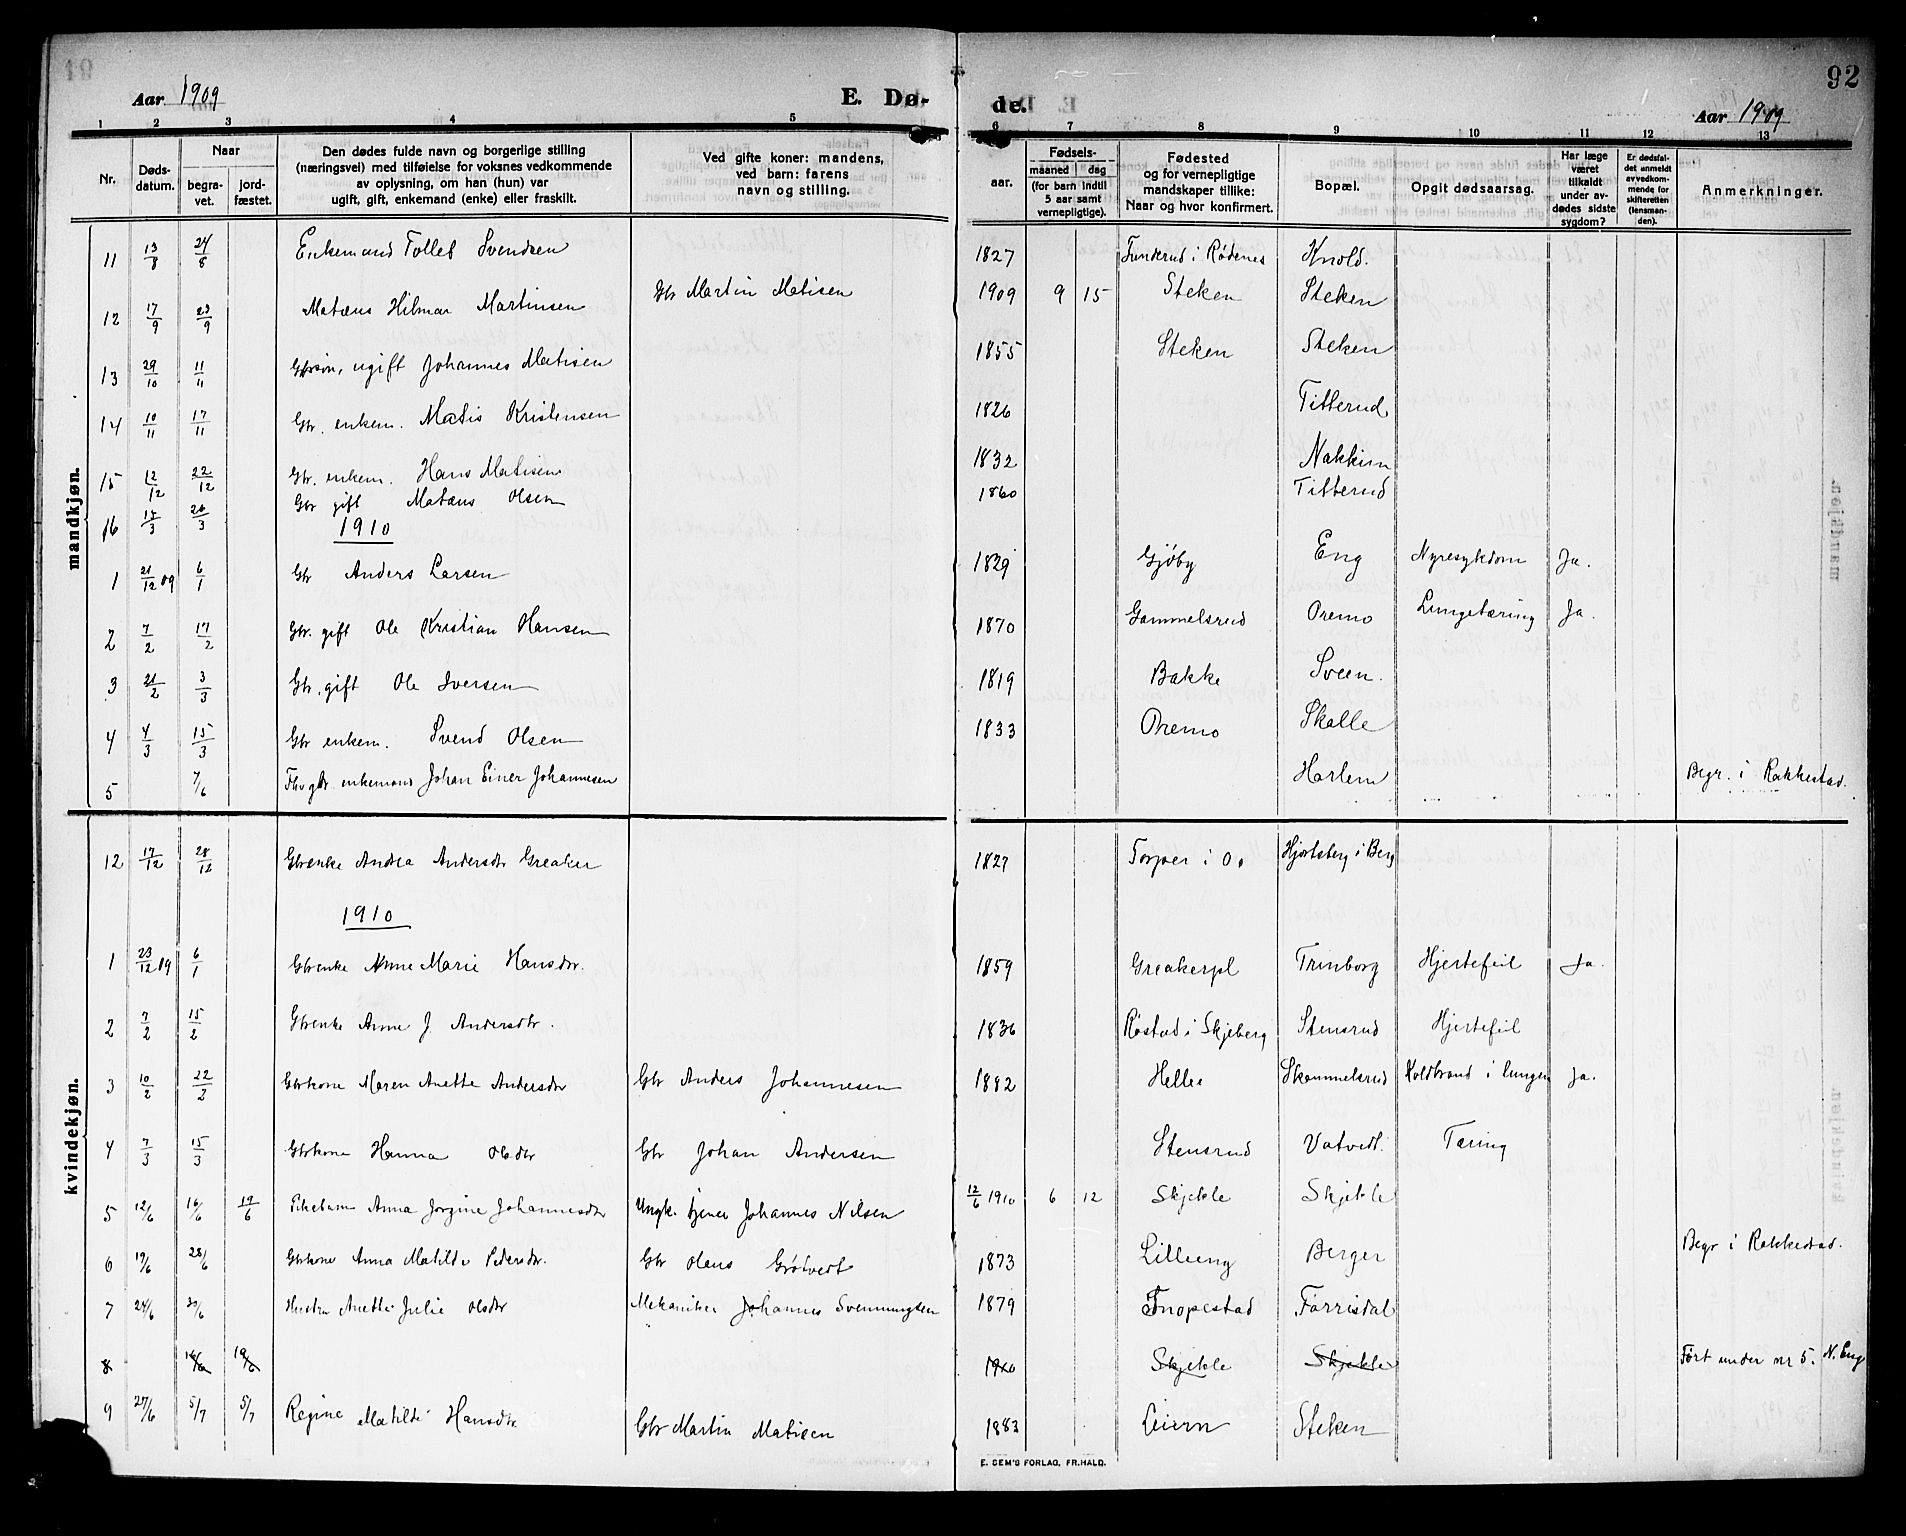 Aar 1909 E. Dø- de. Aar 1909 92
1 2 3 4 5 6 7 8 9 10 11 12 13
Nr. Døds-datum. Naar begra-vet. jord-fæstet. Den dødes fulde navn og borgerlige stilling (næringsvei) med tilføielse for voksnes vedkommende av oplysning, om han (hun) var ugift, gift, enkemand (enke) eller fraskilt. Ved gifte koner: mandens, ved barn: farens navn og stilling. aar. Fødsels- maaned dag (for barn indtil 5 aar samt vernepligtige). Fødested og for vernepligtige mandskaper tillike: Naar og hvor konfirmert. Bopæl. Opgit dødsaarsag. Har læge været tilkaldt under av-dødes sidste sygdom? Er dødsfal-det anmeldt av vedkom-mende for skifteretten (lensman-den). Anmerkninger.
mandkjøn.
11 13/8 24/8 Enkemand Tollef Svendsen 1827 Tunderud i Rødenes Knold.
12 17/9 23/9 Matæus Hilmar Martinsen Gbr Martin Matisen 1909 9 15 Steken Steken
13 29/10 11/11 Gbrsøn, ugift Johannes Matisen 1855 Steken Steken
14 10/11 17/11 Gbr. enkem. Matis Kristensen 1826 Titterud
15 12/12 22/12 Gbr. enkem. Hans Matisen 1832 Nakkim
16 15/3 20/3 Gbr gift Matæus Olsen 1860 Titterud
1910
1 21/12 09 6/1 Gbr Anders Larsen 1829 Gjøby Eng Nyresykdom Ja.
2 7/2 17/2 Gbr. gift Ole Kristian Hansen 1870 Gammelsrud Oremo Lungetæring Ja.
3 21/2 3/3 Gbr. gift Ole Iversen 1819 Bakke Sveen.
4 4/3 15/3 Gbr enkem. Svend Olsen 1833 Oremo Skolle
5 7/6 enkemand Johan Einer Johannesen Harlem Begr. i Rakkestad.
kvindekjøn.
12 17/12 28/12 Gbrenke Andrea Andersdtr Greaker 1827 Torper i Os Hjortsberg i Berg
1910
1 23/12 09 6/1 Gbrenke Anne Marie Hansdtr. 1859 Greakerpl Trinborg Hjertefeil Ja.
2 7/2 15/2 Gbrenke Anne J. Andersdtr. 1836 Røstad i Skjeberg Stensrud Hjertefeil
3 10/2 22/2 Gbrkone Maren Anette Andersdtr Gbr Anders Johannesen 1882 Helle Skammelsrud Koldbrand i lungen Ja.
4 7/3 15/3 Gbrkone Hanna Olsdtr Gbr Johan Andersen Stensrud Vatvedt. Tæring
5 12/6 16/6 19/6 Pikebarn Anna Jorgine Johannesdtr Ungk. tjener Johannes Nilsen 12/6 1910 6 12 Skjekle Skjekle
6 19/6 28/6 Gbrkone Anna Matilde Pedersdtr. Gbr Olaus Grøtvedt 1873 Lilleeng Berger Begr i Rakkestad.
7 24/6 30/6 Hustru Anette Julie Olsdtr Mekaniker Johannes Svenningsen 1879 Knopestad Førrisdal
8 16/6 19/6 1910 Skjekle Skjekle Ført under nr 5. N. Eng
9 27/6 5/7 5/7 Regine Matilde Hansdtr. Gbr Martin Matisen 1883 Leiern Steken
E. SEM'S FORLAG, FR.HALD.